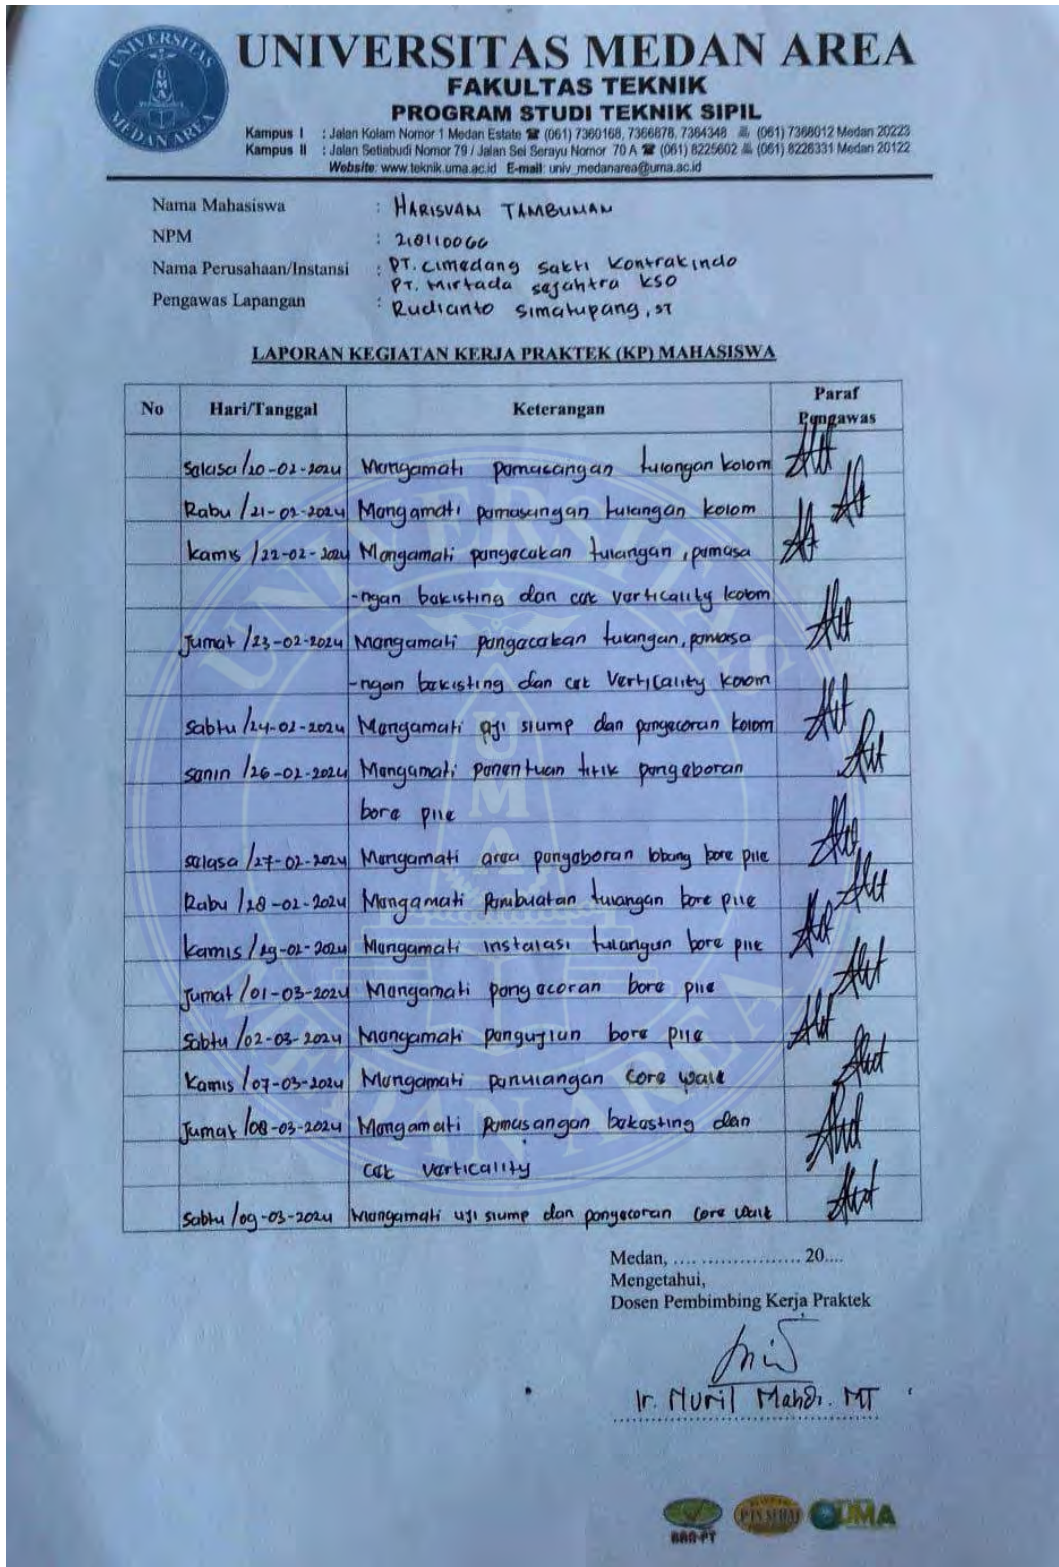 UNIVERSITAS MEDAN AREA
UNIVERSITAS MEDAN AREA
FAKULTAS TEKNIK
PROGRAM STUDI TEKNIK SIPIL
Kampus I : Jalan Kolam Nomor 1 Medan Estate ☎ (061) 7360168, 7366878, 7364348 (061) 7368012 Medan 20223
Kampus II : Jalan Setiabudi Nomor 79 / Jalan Sei Serayu Nomor 70 A ☎ (061) 8225602 (061) 8226331 Medan 20122
Website: www.teknik.uma.ac.id E-mail: univ_medanarea@uma.ac.id
Nama Mahasiswa : HARISVAN TAMBUNAN
NPM : 218110066
Nama Perusahaan/Instansi : PT. Cimedang Sakti Kontrakindo
PT. Mirtada Sejahtra KSO
Pengawas Lapangan : Rudianto Simatupang, ST
LAPORAN KEGIATAN KERJA PRAKTEK (KP) MAHASISWA
No Hari/Tanggal Keterangan Paraf Pengawas
Selasa /20-02-2024 Mengamati pemasangan tulangan kolom
Rabu /21-02-2024 Mengamati pemasangan tulangan kolom
Kamis /22-02-2024 Mengamati pengecekan tulangan, pemasa
-ngan bekisting dan cek verticality kolom
Jumat /23-02-2024 Mengamati pengecekan tulangan, pemasa
-ngan bekisting dan cek verticality kolom
Sabtu /24-02-2024 Mengamati uji slump dan pengecoran kolom
Senin /26-02-2024 Mengamati penentuan titik pengeboran
bore pile
Selasa /27-02-2024 Mengamati area pengeboran lobang bore pile
Rabu /28-02-2024 Mengamati Pembuatan tulangan bore pile
Kamis /29-02-2024 Mengamati instalasi tulangan bore pile
Jumat /01-03-2024 Mengamati pengecoran bore pile
Sabtu /02-03-2024 Mengamati pengujian bore pile
Kamis /07-03-2024 Mengamati penulangan core wall
Jumat /08-03-2024 Mengamati Pemasangan bekesting dan
cek verticality
Sabtu /09-03-2024 Mengamati uji slump dan pengecoran core wall
Medan, .................... 20....
Mengetahui,
Dosen Pembimbing Kerja Praktek
Ir. Nuril Mahdi. MT
BAN-PT
UMA